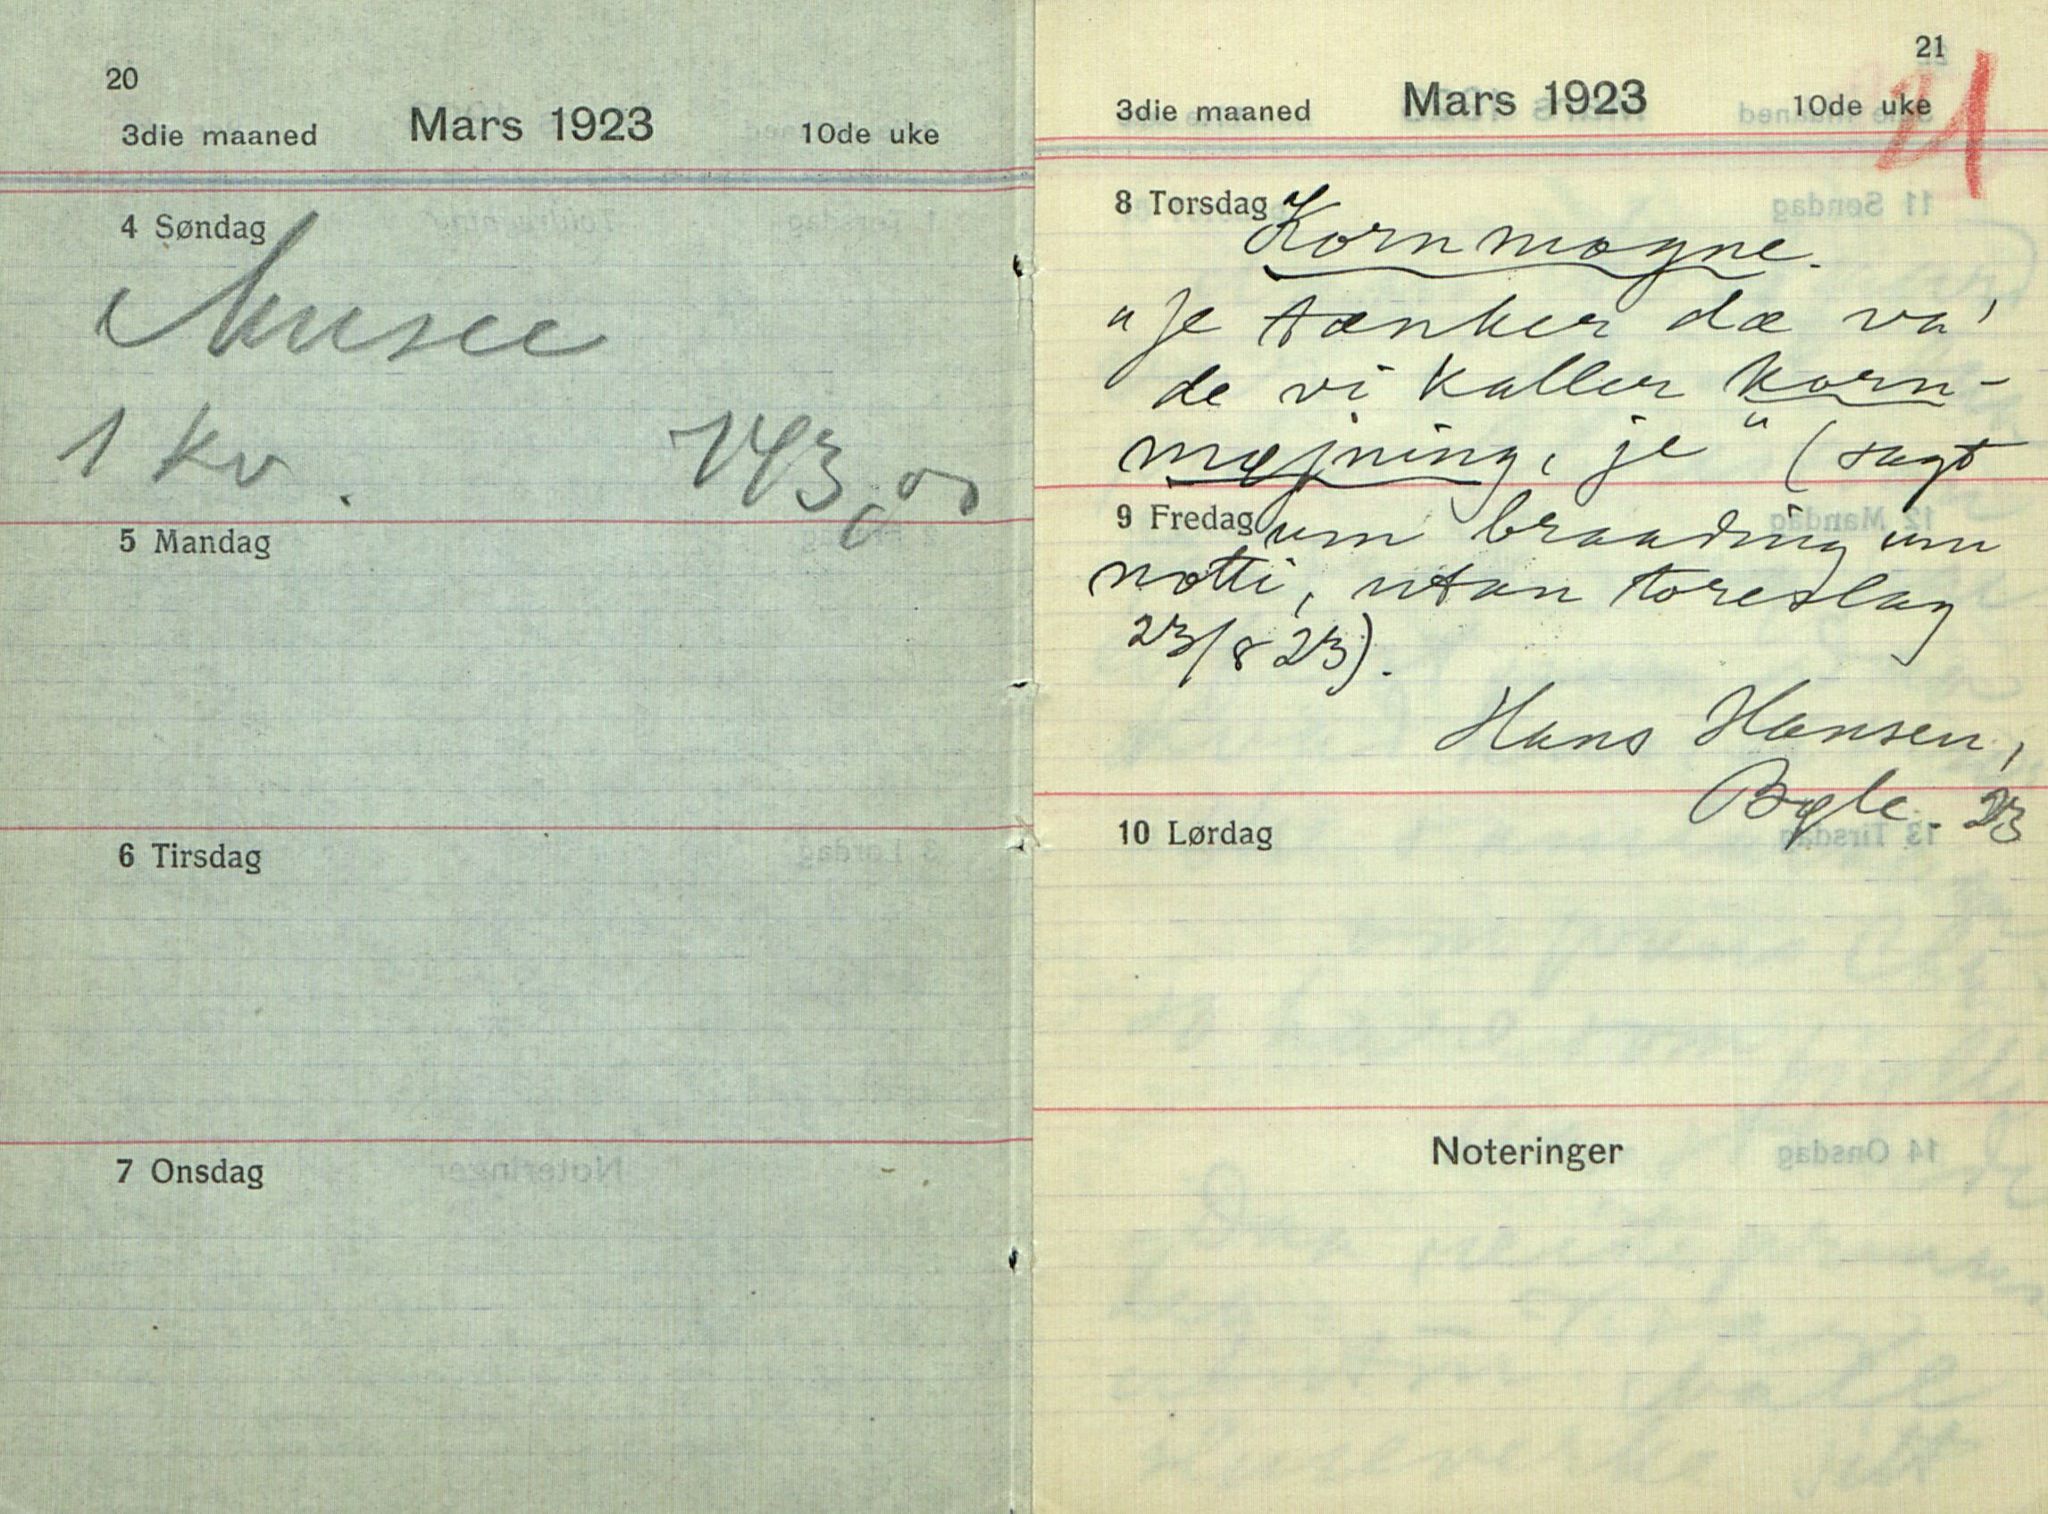 20
3die maaned Mars 1923 10de uke
4 Søndag
Musee
1 kv. 143,00
5 Mandag
6 Tirsdag
7 Onsdag
21
21
3die maaned Mars 1923 10de uke
8 Torsdag
Kornmogne.
"Je tænker dæ va'
de vi kaller korn-
mojning, je" (sagt
9 Fredag
um braading um
notti, utan toreslag
23/8 23).
Hans Hansen,
23
10 Lørdag
Noteringer